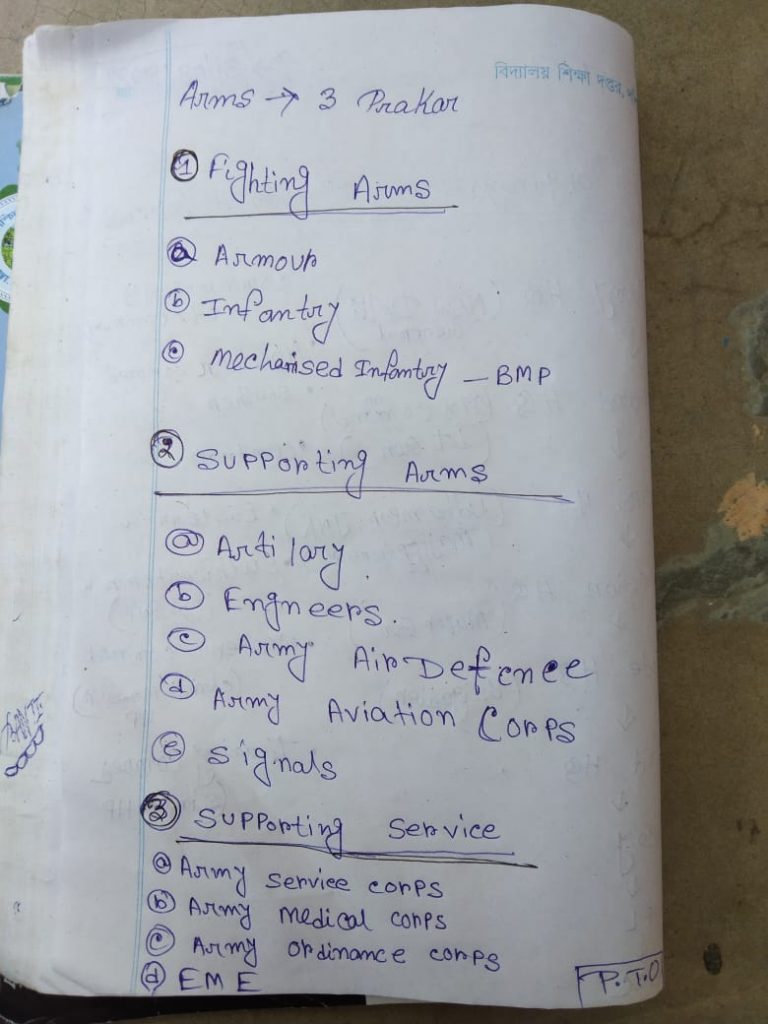 বিদ্যালয় শিক্ষা দপ্তর,
Arms → 3 Prakar
① Fighting Arms
ⓐ Armour
ⓑ Infantry
ⓒ Mechanised Infantry – BMP
② Supporting Arms
ⓐ Artilary
ⓑ Engneers.
ⓒ Army Air Defence
ⓓ Army Aviation Corps
ⓔ Signals
③ Supporting Service
ⓐ Army Service corps
ⓑ Army medical corps
ⓒ Army ordinance corps
ⓓ EME
P.T.O